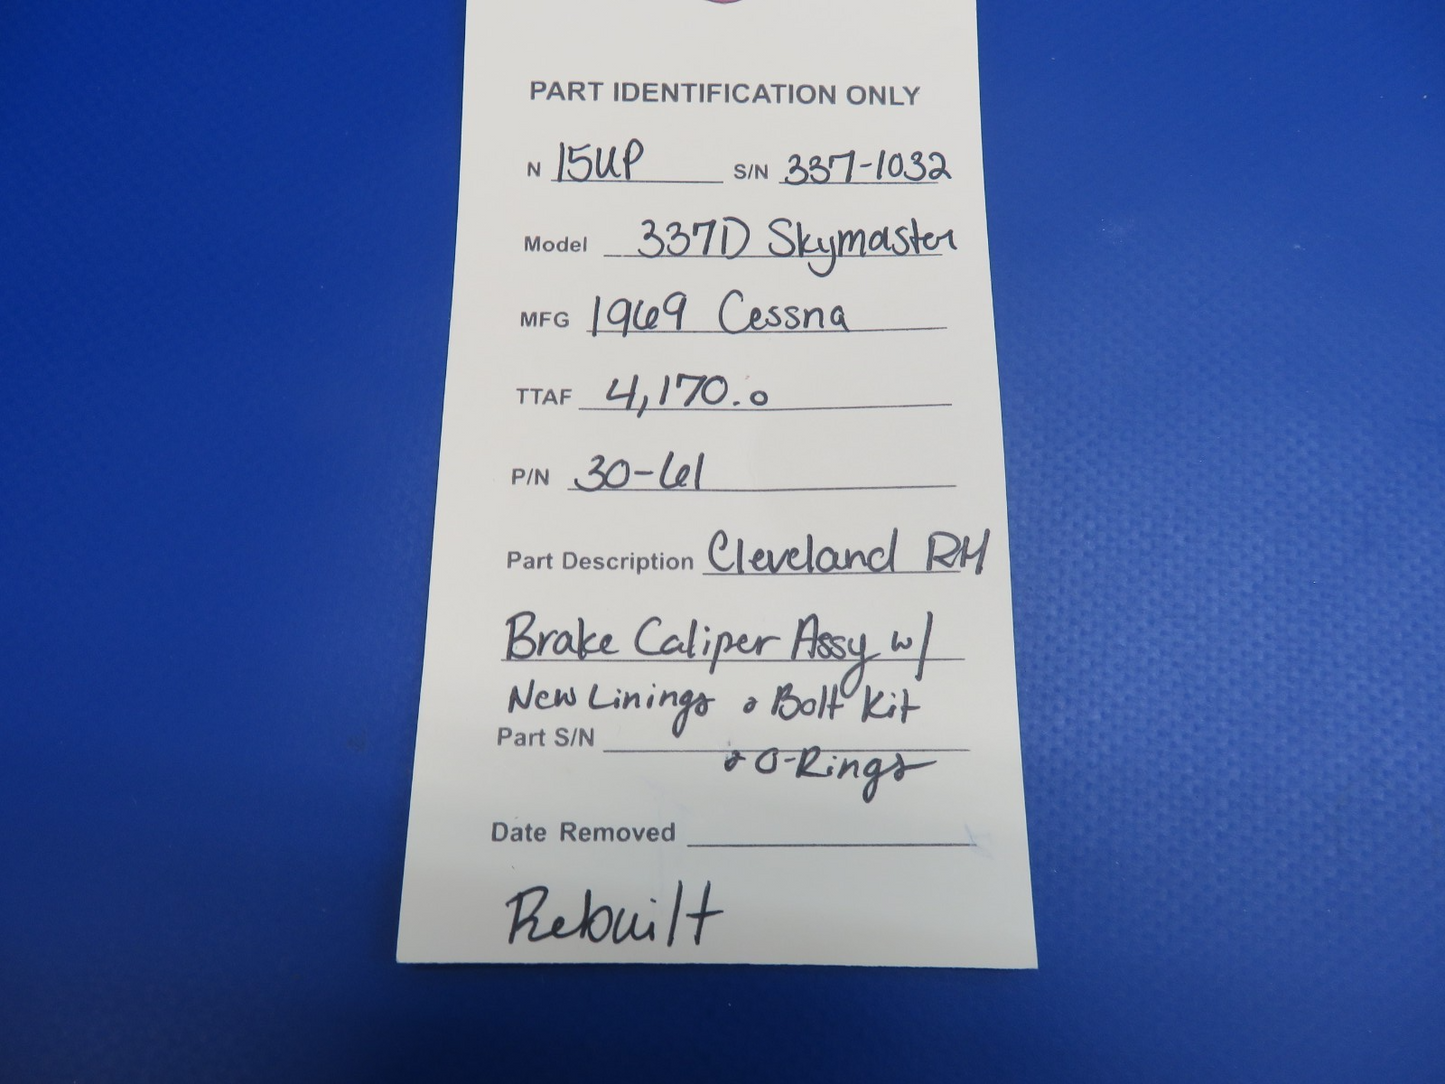 PART IDENTIFICATION ONLY
N 15UP S/N 337-1032
Model 337D Skymaster
MFG 1969 Cessna
TTAF 4,170.0
P/N 30-61
Part Description Cleveland RH
Brake Caliper Assy w/
New Linings & Bolt Kit
Part S/N
& O-Rings
Date Removed
Rebuilt